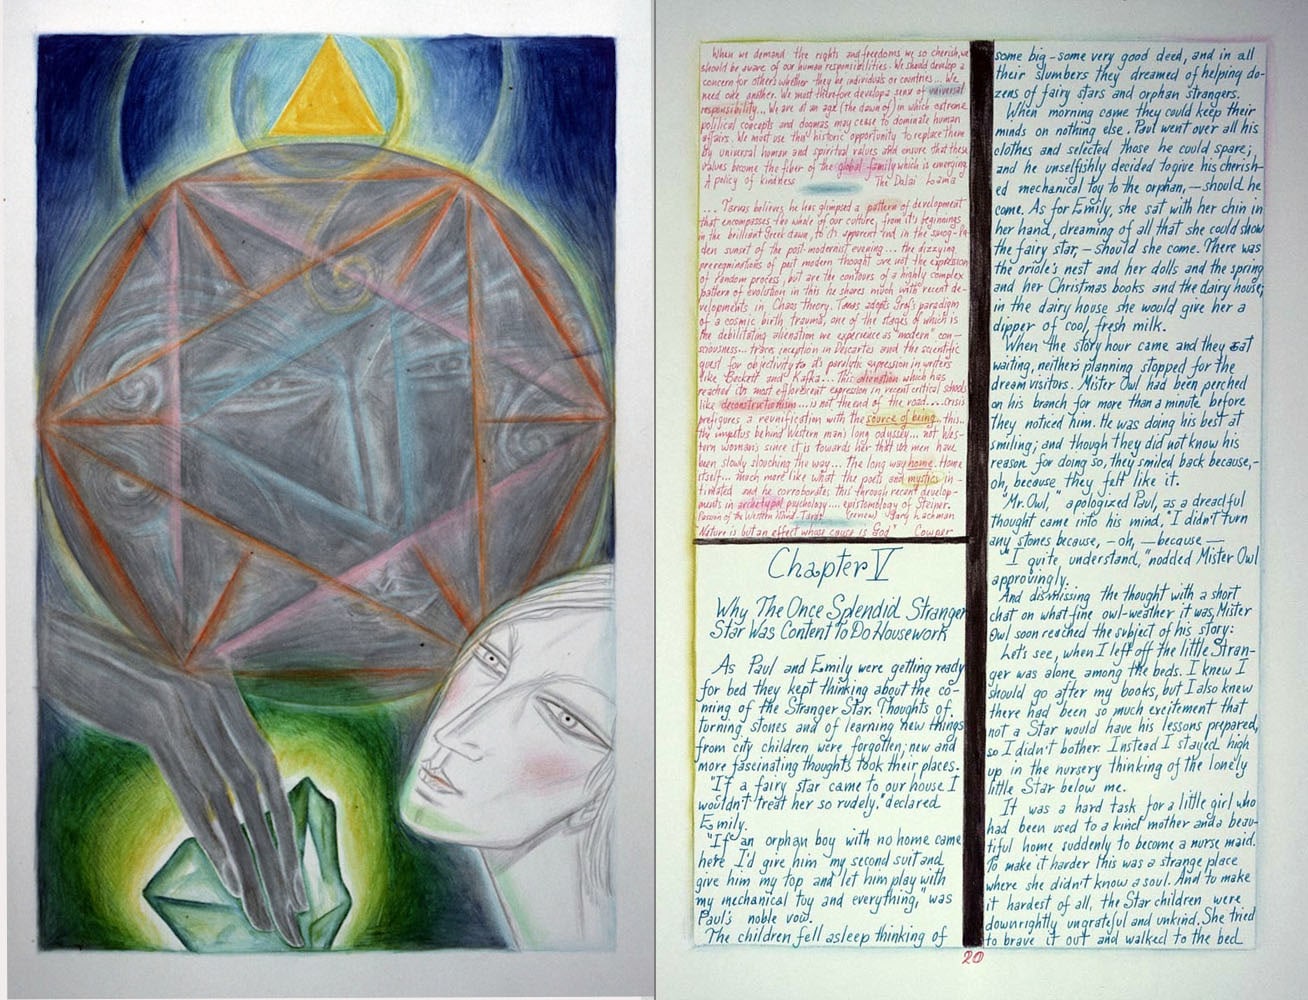 When we demand the rights and freedoms we so cherish, we
should be aware of our human responsibilities. We should develop a
concern for others whether they be individuals or countries... We
need one another. We must therefore develop a sens of universal
responsibility... We are at an age (the dawn of) in which extreme
political concepts and dogmas may cease to dominate human
affairs. We must use this historic opportunity to replace them
by universal human and spiritual values and ensure that these
values become the fiber of the global family which is emerging
A policy of kindness The Dalai Lama
... Tarnas believes he has glimpsed a pattern of development
that encompasses the whole of our culture, from it's beginnings
in the brilliant Greek dawn, to its apparent end in the
den sunset of the post-modernist evening... the dizzying
peregrinations of past modern thought are not the expression
of random process but are the contours of a highly complex
pattern of evolution in this he shares much with recent de-
velopments in Chaos Theory. Tarnas adopts Grof's paradigm
of a cosmic birth trauma, one of the stages of which is
the debilitating alienation we experience as "modern" con-
sciousness... traces inception in Descartes and the scientific
quest for objectivity to it's paralytic expression in writers
like Beckett and Kafka... This alienation which has
reached its most efflorescent expression in recent critical schools
like deconstructionism... is not the end of the road.... crisis
prefigures a reunification with the source of being.. this..
the impetus behind Western man's long odyssey... not Wes-
tern woman's since it is towards her that we men have
been slowly slouching the way... The long way home. Home
itself... much more like what the poets and mystics in-
timated and he corroborates this through recent develop-
ments in archetypal psychology.... epistemology of Steiner.
Passion of the Western Mind - Tarnas (review Gary Lachman
Nature is but an effect whose cause is God" Cowper
Chapter V
Why The Once Splendid Stranger
Star Was Content To Do Housework
As Paul and Emily were getting ready
for bed they kept thinking about the co-
ming of the Stranger Star. Thoughts of
turning stones and of learning new things
from city children were forgotten; new and
more fascinating thoughts took their places.
"If a fairy star came to our house I
wouldn't treat her so rudely," declared
Emily.
"If an orphan boy with no home came
here I'd give him my second suit and
give him my top and let him play with
my mechanical toy and everything," was
Paul's noble vow.
The children fell asleep thinking of
some big - some very good deed, and in all
their slumbers they dreamed of helping do-
zens of fairy stars and orphan strangers.
When morning came they could keep their
minds on nothing else. Paul went over all his
clothes and selected those he could spare;
and he unselfishly decided to give his cherish-
ed mechanical toy to the orphan, — should he
come. As for Emily, she sat with her chin in
her hand, dreaming of all that she could show
the fairy star, — should she come. There was
the oriole's nest and her dolls and the spring
and her Christmas books and the dairy house;
in the dairy house she would give her a
dipper of cool, fresh milk.
When the story hour came and they sat
waiting, neither's planning stopped for the
dream visitors. Mister Owl had been perched
on his branch for more than a minute before
they noticed him. He was doing his best at
smiling; and though they did not know his
reason for doing so, they smiled back because,-
oh, because they felt like it.
"Mr. Owl," apologized Paul, as a dreadful
thought came into his mind, "I didn't turn
any stones because, - oh, — because —
"I quite, understand," nodded Mister Owl
approvingly.
And dismissing the thought with a short
chat on what fine owl-weather it was, Mister
Owl soon reached the subject of his story:
Let's see, when I left off the little Stran-
ger was alone among the beds. I knew I
should go after my books, but I also knew
there had been so much excitement that
not a Star would have his lessons prepared,
so I didn't bother. Instead I stayed high
up in the nursery thinking of the lonely
little Star below me.
It was a hard task for a little girl who
had been used to a kind mother and a beau-
tiful home suddenly to become a nurse maid.
To make it harder this was a strange place
where she didn't know a soul. And to make
it hardest of all, the Star children were
downrightly ungrateful and unkind. She tried
to brave it out and walked to the bed
20